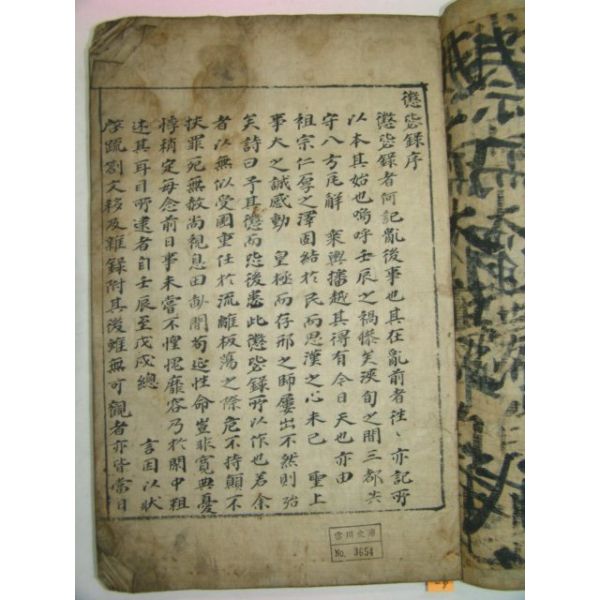 懲毖錄序
懲毖錄者何記亂後事也其在亂前者徃〻亦記所
以本其始也嗚呼壬辰之禍慘矣浹旬之間三都失
守八方瓦解 乘輿播越其得有今日天也亦由
祖宗仁厚之澤固結於民而思漢之心未已 聖上
事大之誠感動 皇極而存邢之師屢出不然則殆
矣詩曰予其懲而毖後患此懲毖錄所以作也若余
者以無似受國重任於流離板蕩之際危不持顚不
扶罪死無赦尚視息田畝間苟延性命豈非寬典憂
悸稍定每念前日事未嘗不惶愧靡容乃於閑中粗
述其耳目所逮者自壬辰至戊戌總 言因以狀
啓疏劄文移及雜錄附其後雖無可觀者亦皆當日
No. 3654